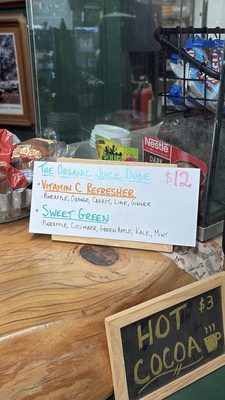 The Organic Juice Dude
$12
· Vitamin C Refresher
Pineapple, Orange, Carrot, Lime, Ginger
· Sweet Green
Pineapple, Cucumber, Green Apple, Kale, Mint
Nestlé
DARK
$3
HOT
COCOA